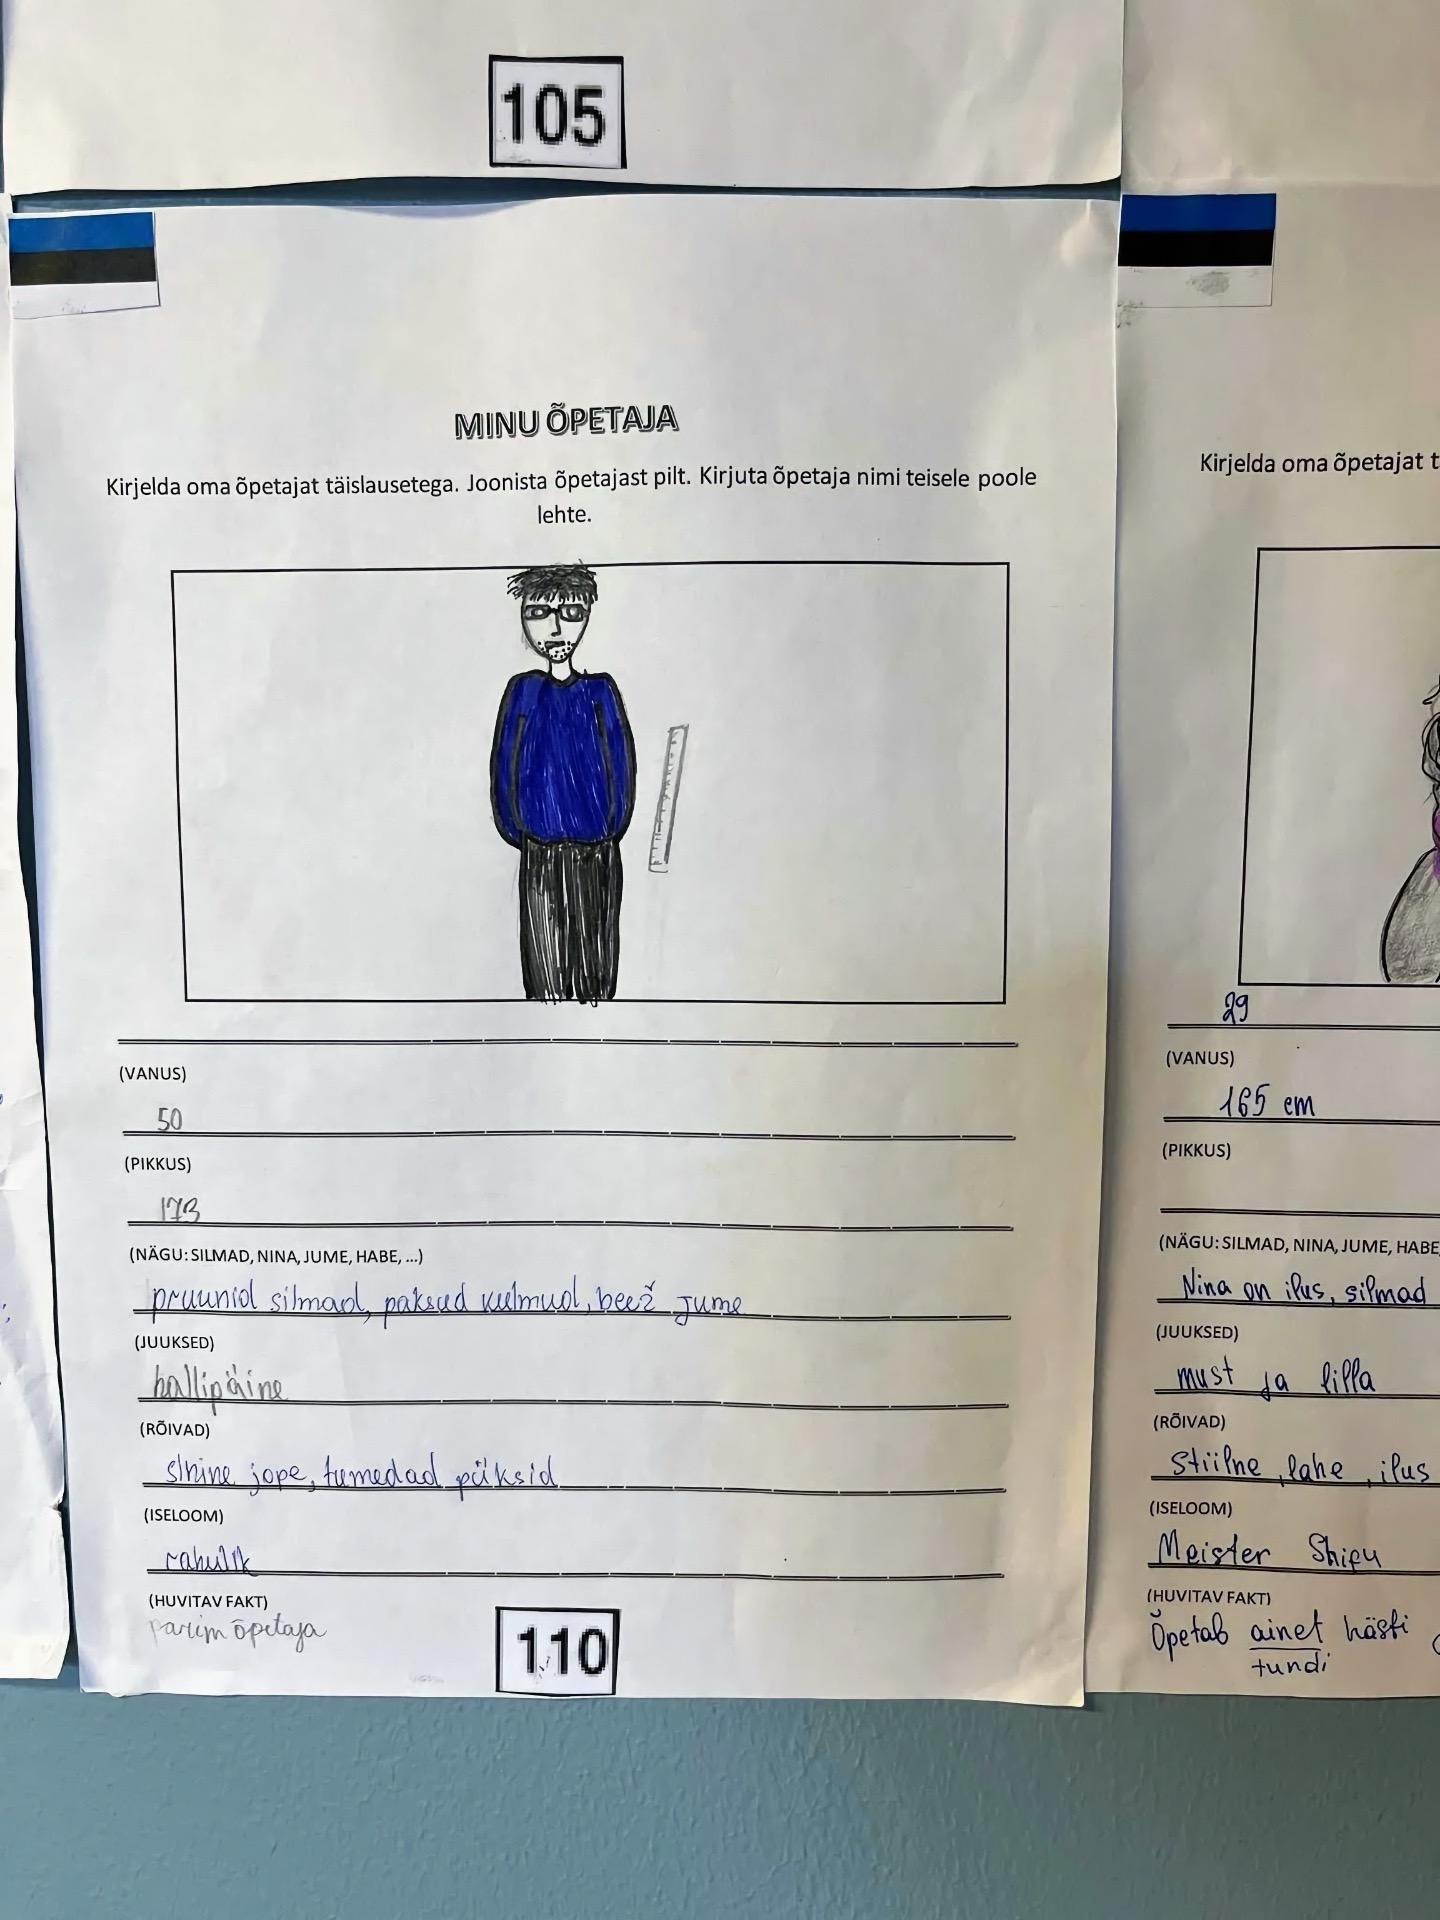 105
MINU ÕPETAJA
Kirjelda oma õpetajat täislausetega. Joonista õpetajast pilt. Kirjuta õpetaja nimi teisele poole
lehte.
(VANUS)
50
(PIKKUS)
173
(NÄGU: SILMAD, NINA, JUME, HABE, ...)
pruunid silmad, paksud kulmud, beež jume
(JUUKSED)
hallipäine
(RÕIVAD)
sinine jope, tumedad püksid
(ISELOOM)
rahulik
(HUVITAV FAKT)
parim õpetaja
110
Kirjelda oma õpetajat t
29
(VANUS)
165 cm
(PIKKUS)
(NÄGU: SILMAD, NINA, JUME, HABE,
Nina on ilus, silmad
(JUUKSED)
must ja lilla
(RÕIVAD)
Stiilne, lahe, ilus
(ISELOOM)
Meister Shifu
(HUVITAV FAKT)
Õpetab ainet hästi
tundi